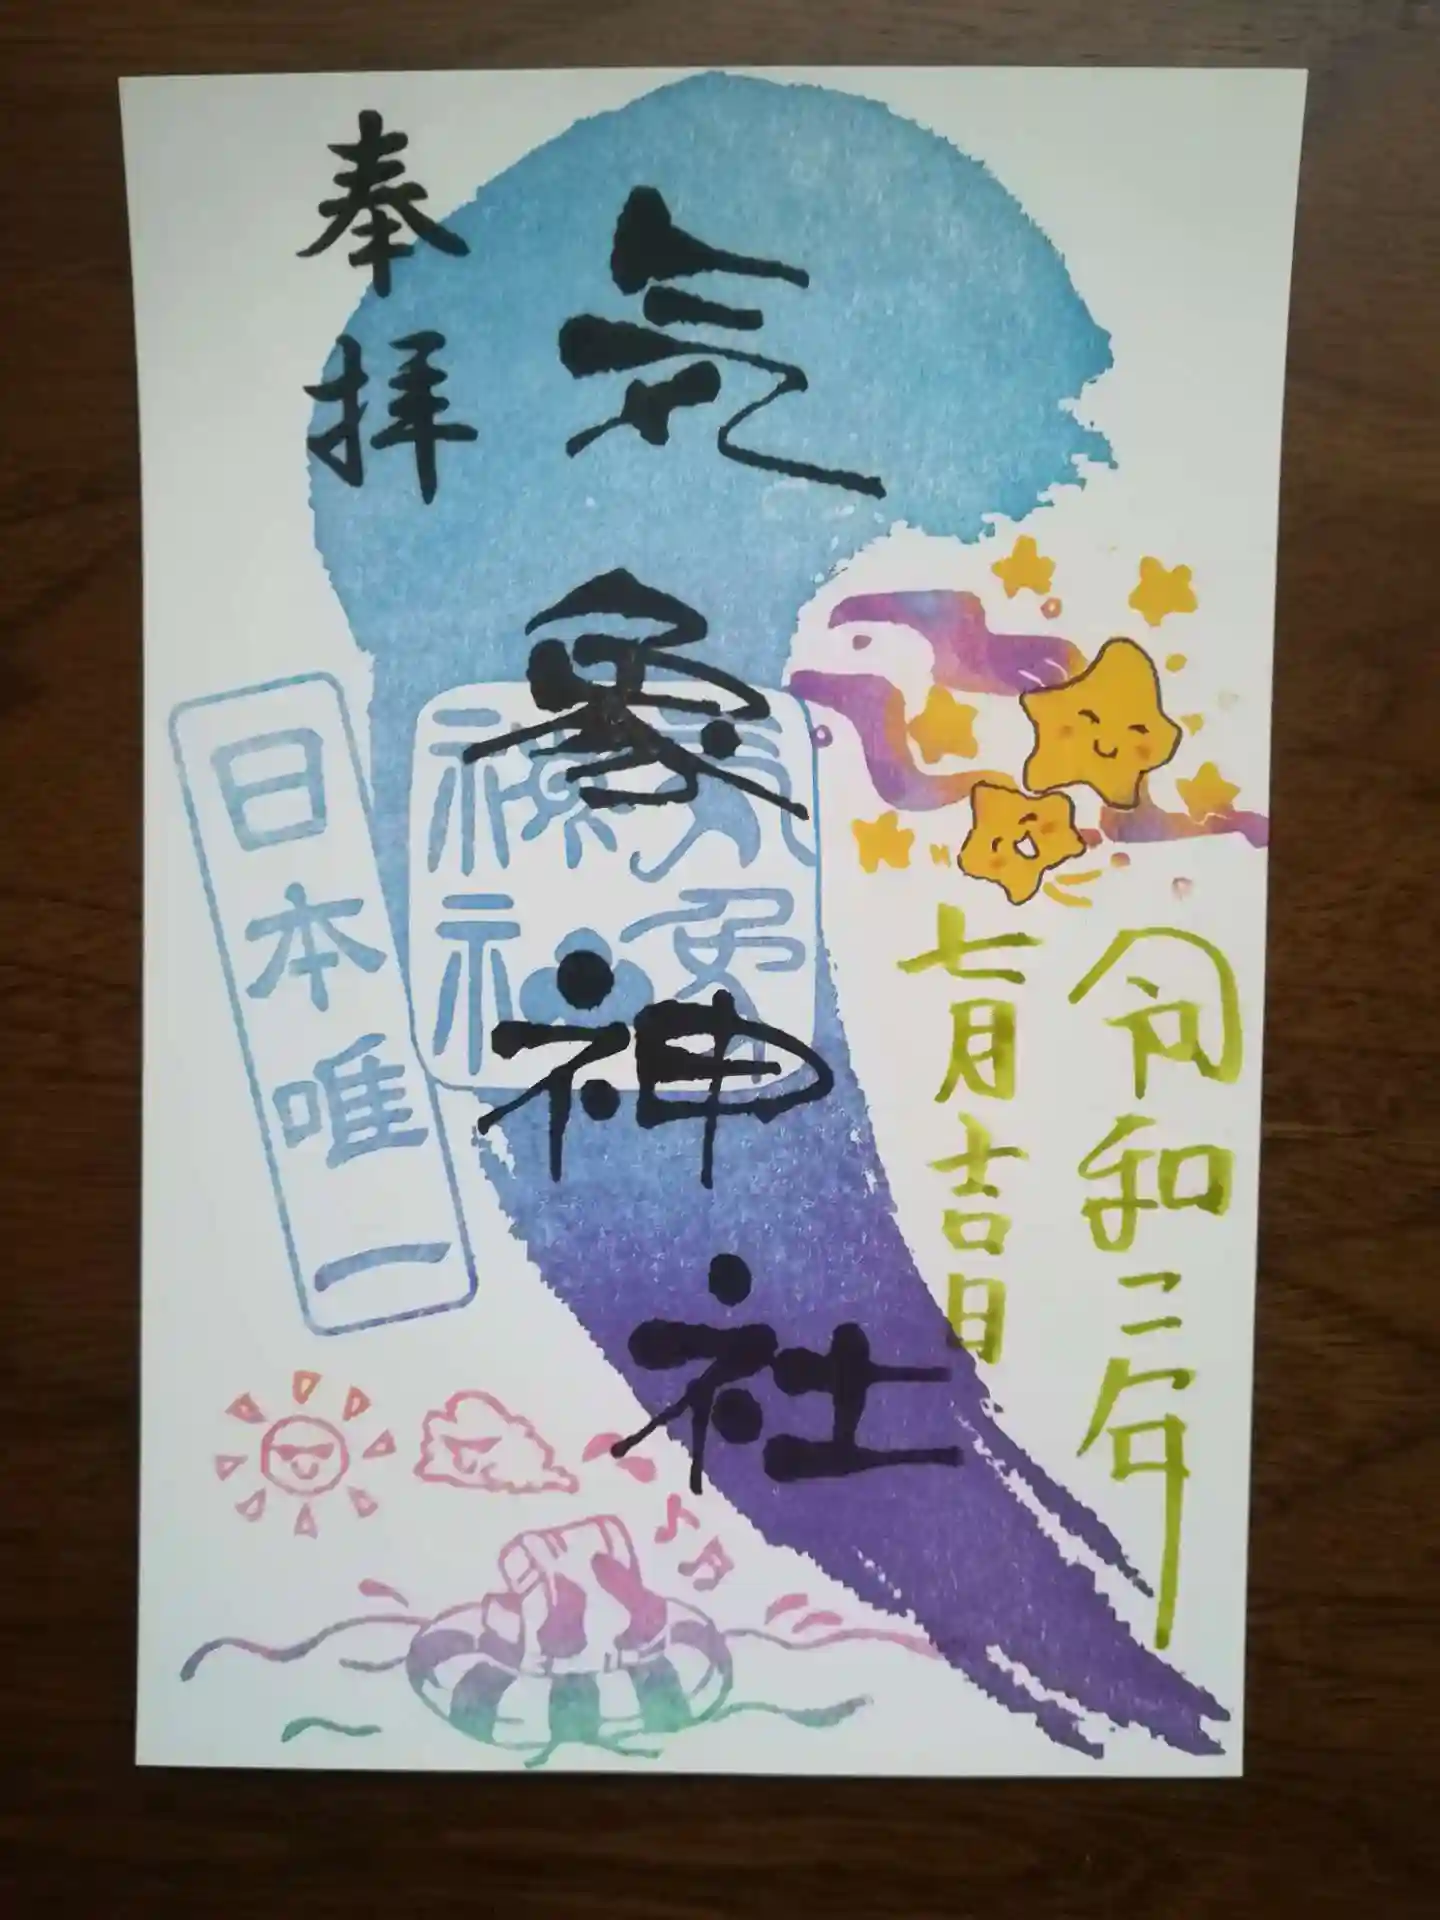 奉拝
気象神社
日本唯一
令和二年
七月吉日